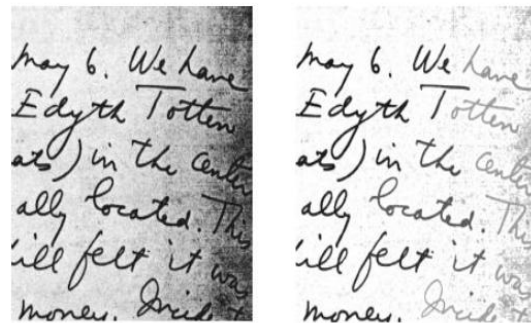 May 6. We have
Edyth Totten
ats) in the center
ally located. This
will felt it was
money.
May 6. We have
Edyth Totten
ats) in the center
ally located. This
will felt it was
money.